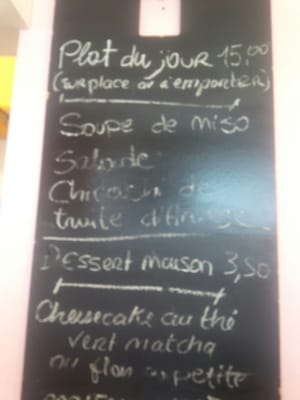 Plat du jour 15,00
(sur place ou à emporter)
Soupe de miso
Salade
Chirashi de
truite
Dessert maison 3,50
Cheesecake au thé
vert matcha
ou flan